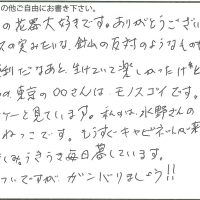 の他ご自由にお書き下さい。
の花器大好きです。ありがとうござい
の実みたいな、針山の反対のようなもの
だなあと、生けていて楽しかったけど
の東京の○○さんは、モノスゴイです。
ーと見ています。私が水野さんの
ねっこです。もうすぐキャビネットが
うきうき毎日暮しています。
ついですが、ガンバリましょう!!